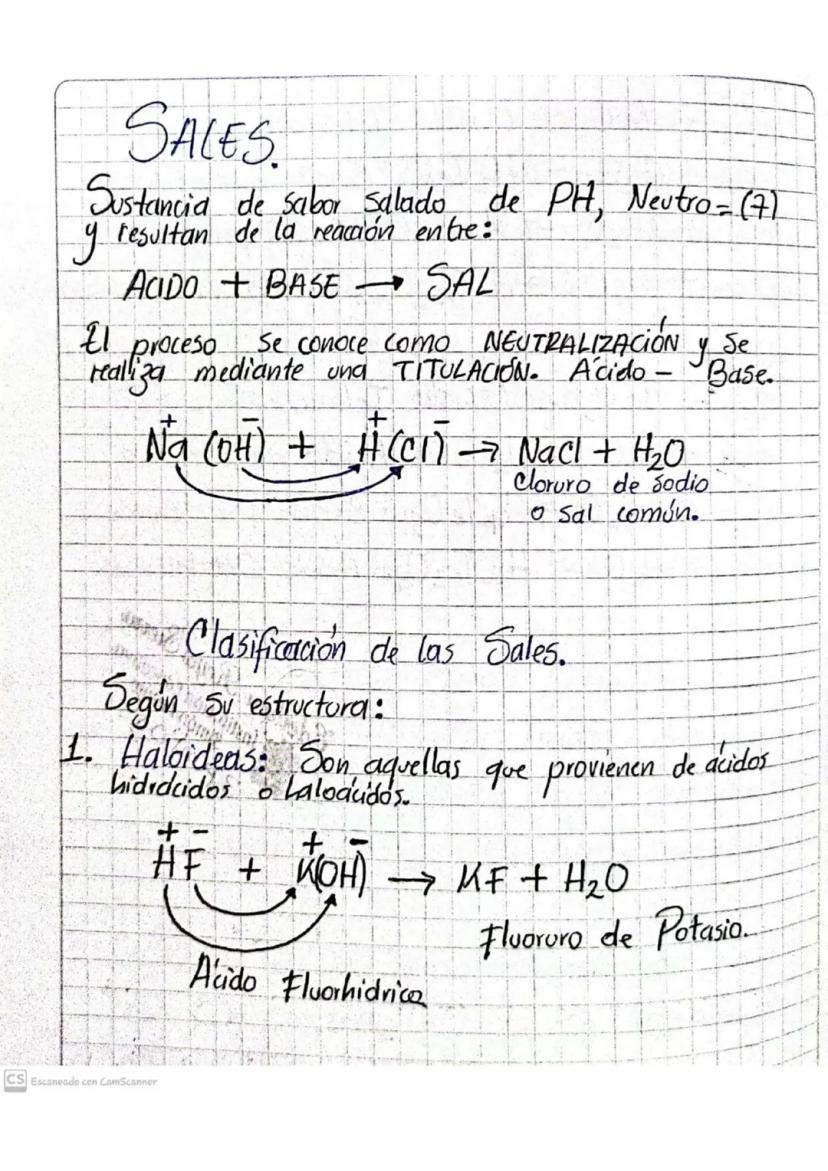 SALES.
Sustancia de sabor salado de PH, Neutro = (7)
y resultan de la reacción entre:
ACIDO + BASE → SAL
El proceso se conoce como NEUTRALIZACIÓN y se
realiza mediante una TITULACIÓN. Ácido - Base.
+ − + −
Na (OH) + H (Cl) → NaCl + H₂O
Cloruro de sodio
o sal común.
Clasificación de las Sales.
Según su estructura:
1. Haloideas: Son aquellas que provienen de ácidos
hidrácidos o haloácidos.
+ − + −
HF + K(OH) → KF + H₂O
Fluoruro de Potasio.
Ácido Fluorhidrico
CS Escaneado con CamScanner